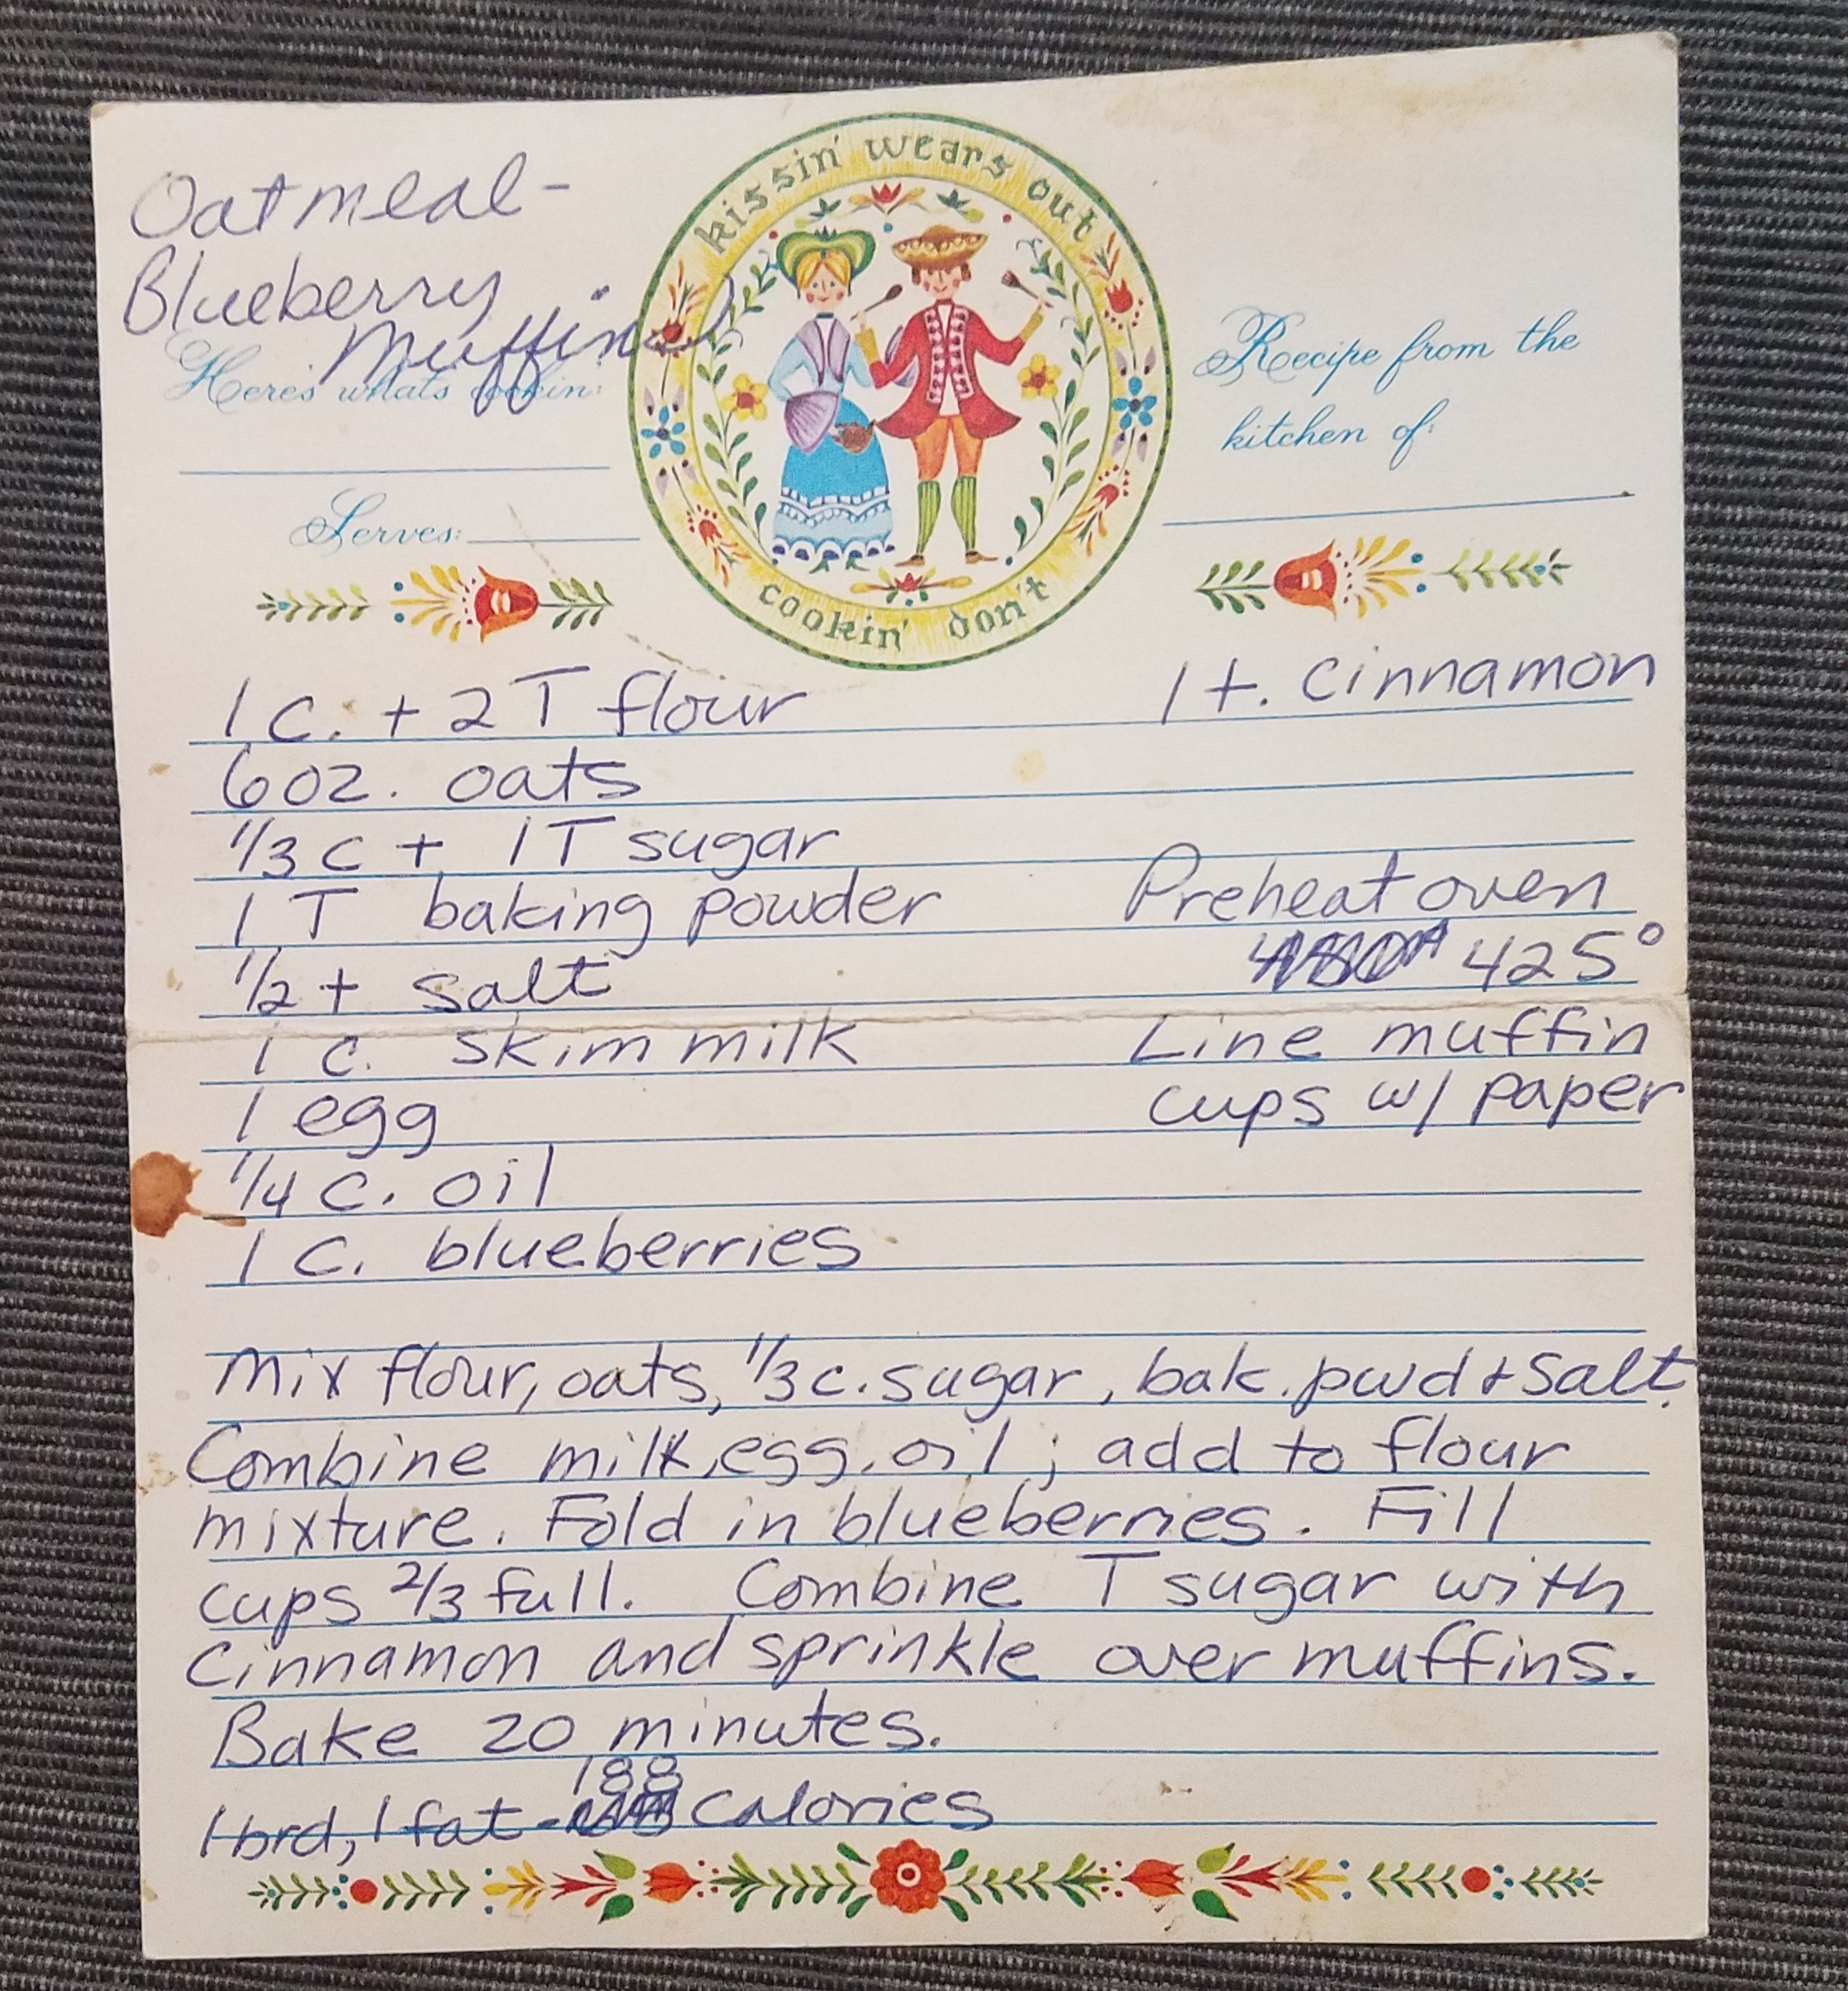 Oatmeal-
Blueberry
Muffins
Here's whats cookin:
Serves:
kissin' wears out
cookin' don't
Recipe from the
kitchen of:
1 c. + 2 T flour
6 oz. oats
1/3 c + 1 T sugar
1 T baking powder
1/2 t salt
1 c. skim milk
1 egg
1/4 c. oil
1 c. blueberries
1 t. cinnamon
Preheat oven
425°
Line muffin
cups w/ paper
Mix flour, oats, 1/3 c. sugar, bak. pwd + salt.
Combine milk, egg, oil; add to flour
mixture. Fold in blueberries. Fill
cups 2/3 full. Combine T sugar with
cinnamon and sprinkle over muffins.
Bake 20 minutes.
188
1 brd, 1 fat - calories